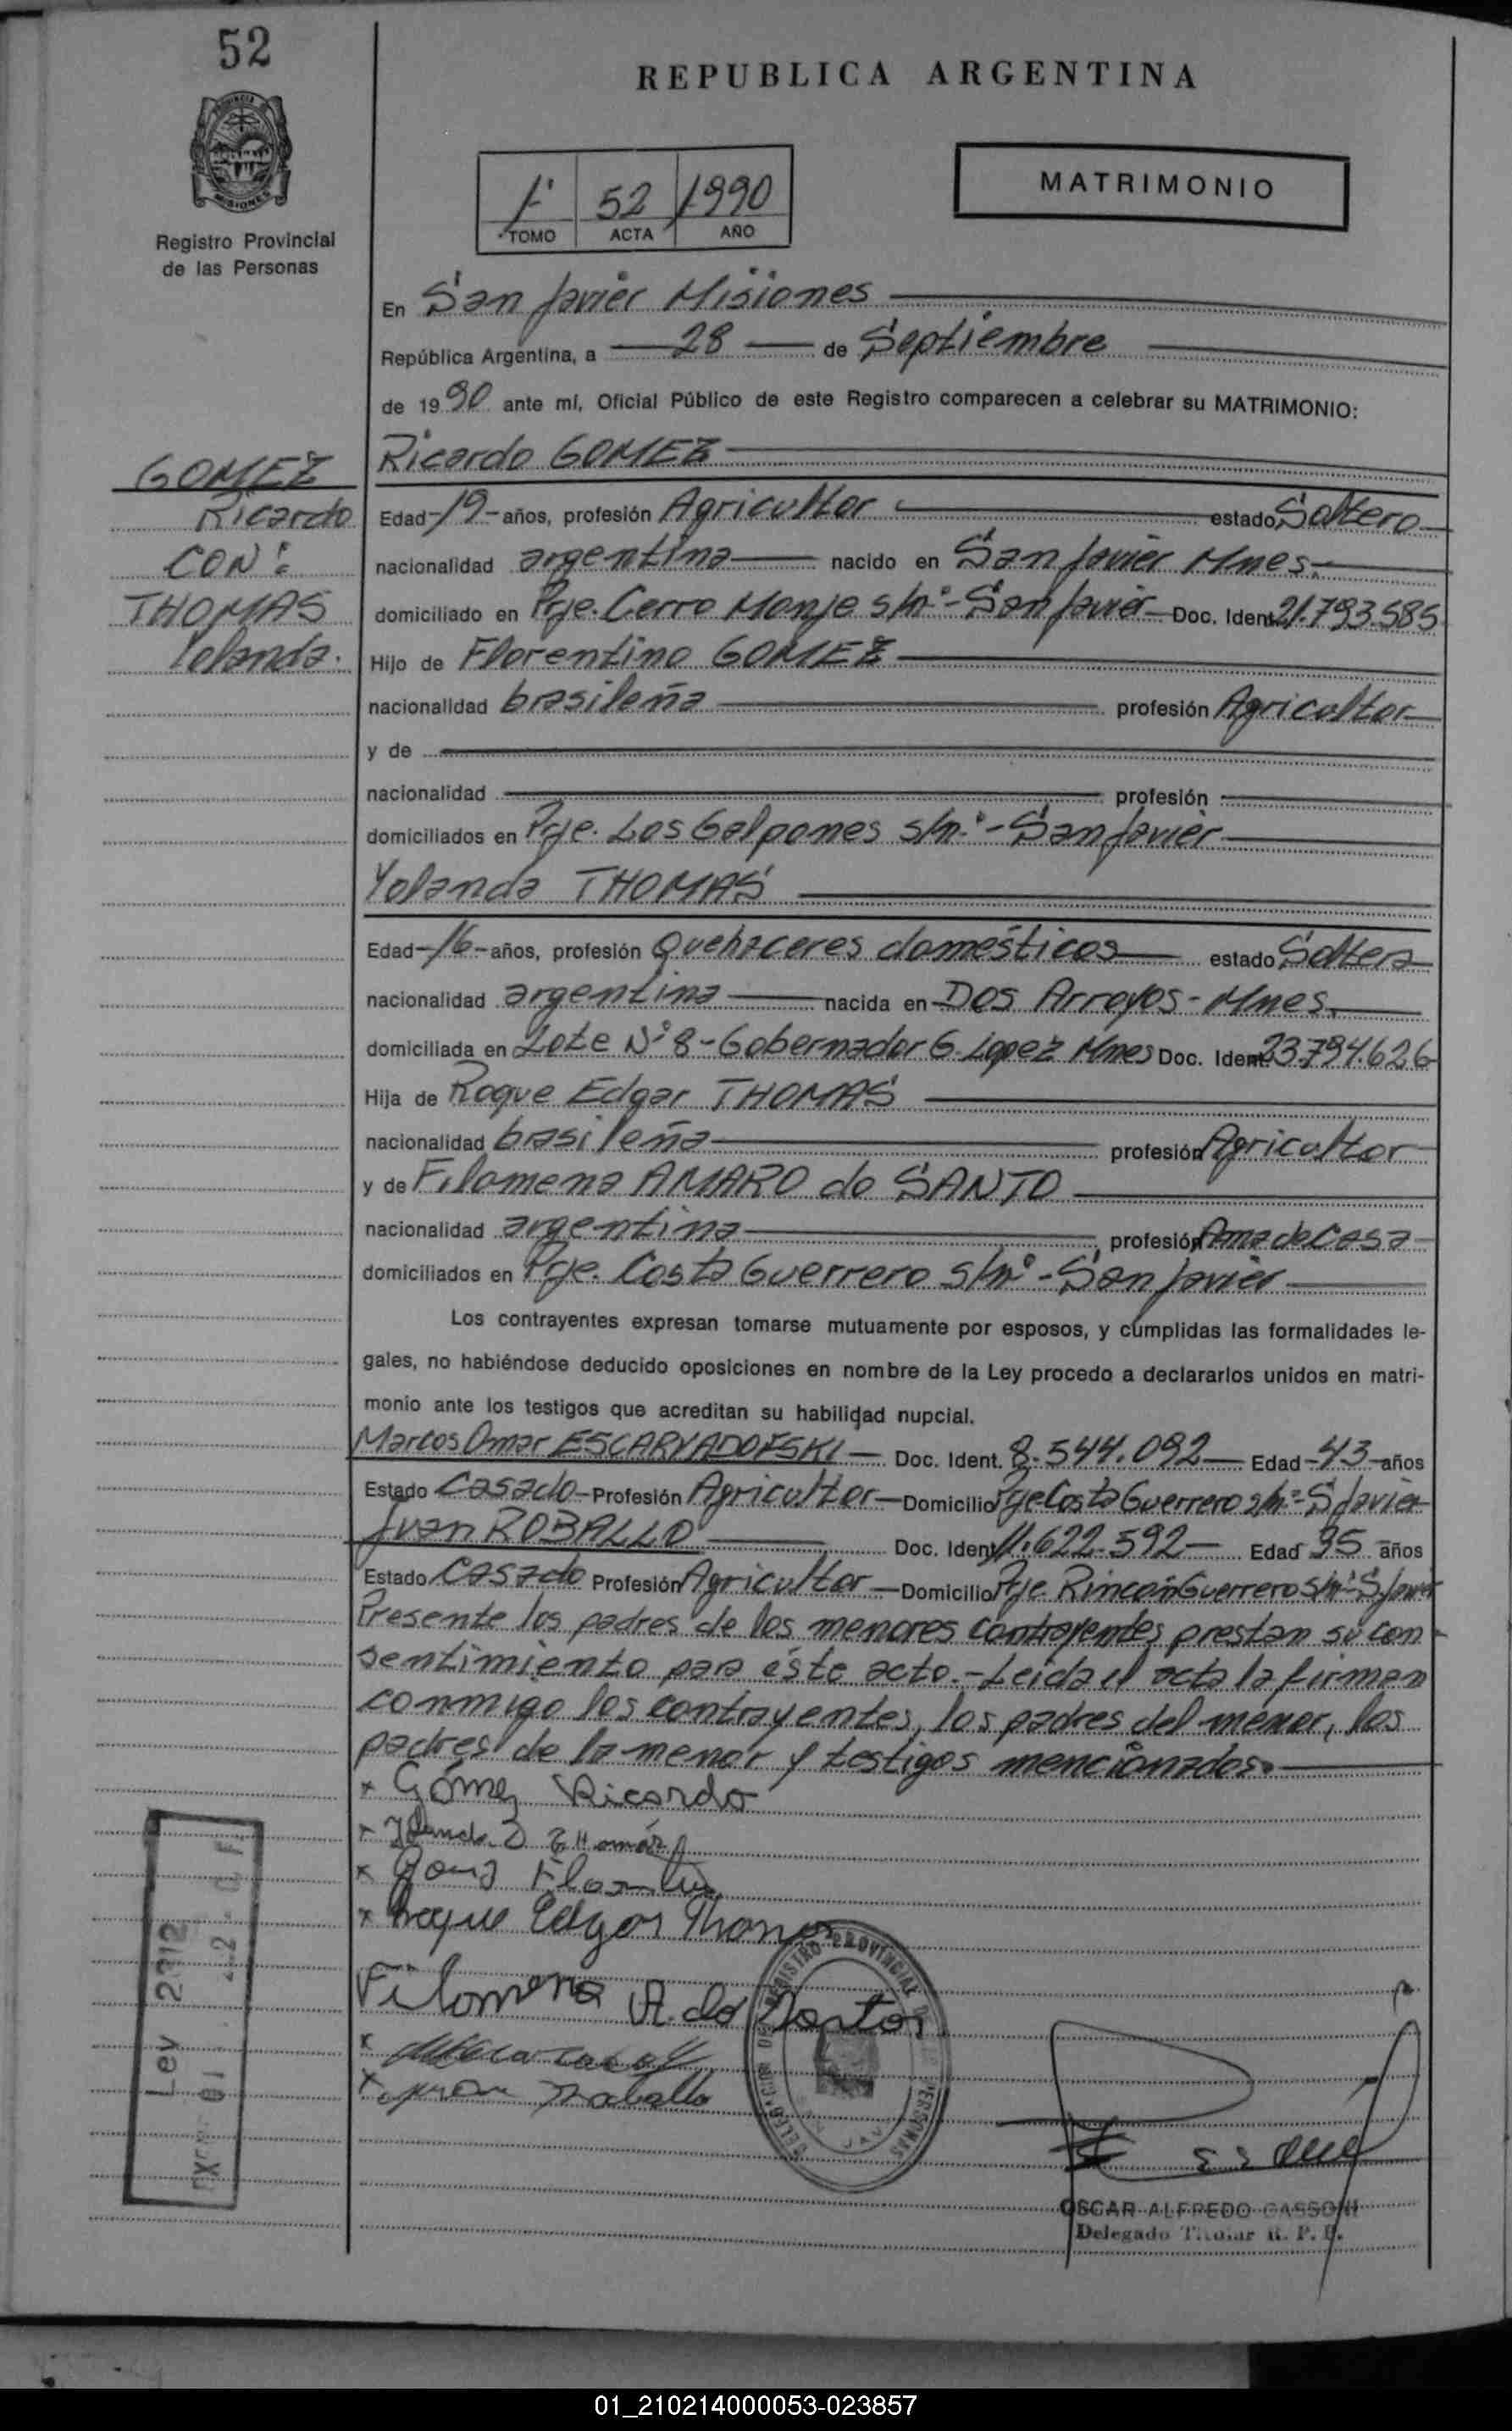 52
REPUBLICA ARGENTINA
MATRIMONIO
1º 52 1990
TOMO ACTA AÑO
PROVINCIA DE
MISIONES
Registro Provincial
de las Personas
En San Javier Misiones
República Argentina, a 28 de Septiembre
de 1990 ante mí, Oficial Público de este Registro comparecen a celebrar su MATRIMONIO:
Ricardo GOMEZ
GOMEZ
Ricardo
CON:
THOMAS
Yolanda.
Edad -19- años, profesión Agricultor estado Soltero
nacionalidad argentina nacido en San Javier Mnes.
domiciliado en Pje. Cerro Monje s/nº - San Javier Doc. Ident. 21.793.585
Hijo de Florentino GOMEZ
nacionalidad brasileña profesión Agricultor
y de
nacionalidad profesión
domiciliados en Pje. Los Galpones s/nº - San Javier
Yolanda THOMAS
Edad -16- años, profesión Quehaceres domésticos estado Soltera
nacionalidad argentina nacida en Dos Arroyos - Mnes.
domiciliada en Lote Nº 8 - Gobernador G. Lopez Mnes Doc. Ident. 23.794.626
Hija de Roque Edgar THOMAS
nacionalidad brasileña profesión Agricultor
y de Filomena AMARO do SANTO
nacionalidad argentina profesión Ama de Casa
domiciliados en Pje. Costa Guerrero s/nº - San Javier
Los contrayentes expresan tomarse mutuamente por esposos, y cumplidas las formalidades le-
gales, no habiéndose deducido oposiciones en nombre de la Ley procedo a declararlos unidos en matri-
monio ante los testigos que acreditan su habilidad nupcial.
Marcos Omar ESCARYADOFSKI Doc. Ident. 8.544.092 Edad -43- años
Estado Casado - Profesión Agricultor - Domicilio Pje Costa Guerrero s/nº - S Javier
Juan ROBALLO Doc. Ident. 11.622.592 Edad 35 años
Estado Casado Profesión Agricultor - Domicilio Pje. Rincón Guerrero s/nº - S. Javier
Presente los padres de los menores contrayentes prestan su con-
sentimiento para éste acto.- Leída el acta la firman
conmigo los contrayentes, los padres del menor, los
padres de la menor y testigos mencionados.
x Gómez Ricardo
x Yolanda
x
x Roque Edgar Thomas
Filomena A. do Santos
x
x Juan Roballo
REGISTRO PROVINCIAL DE PERSONAS
Ley 2912
OSCAR ALFREDO GASSONI
Delegado Titular R. P. P.
01_210214000053-023857